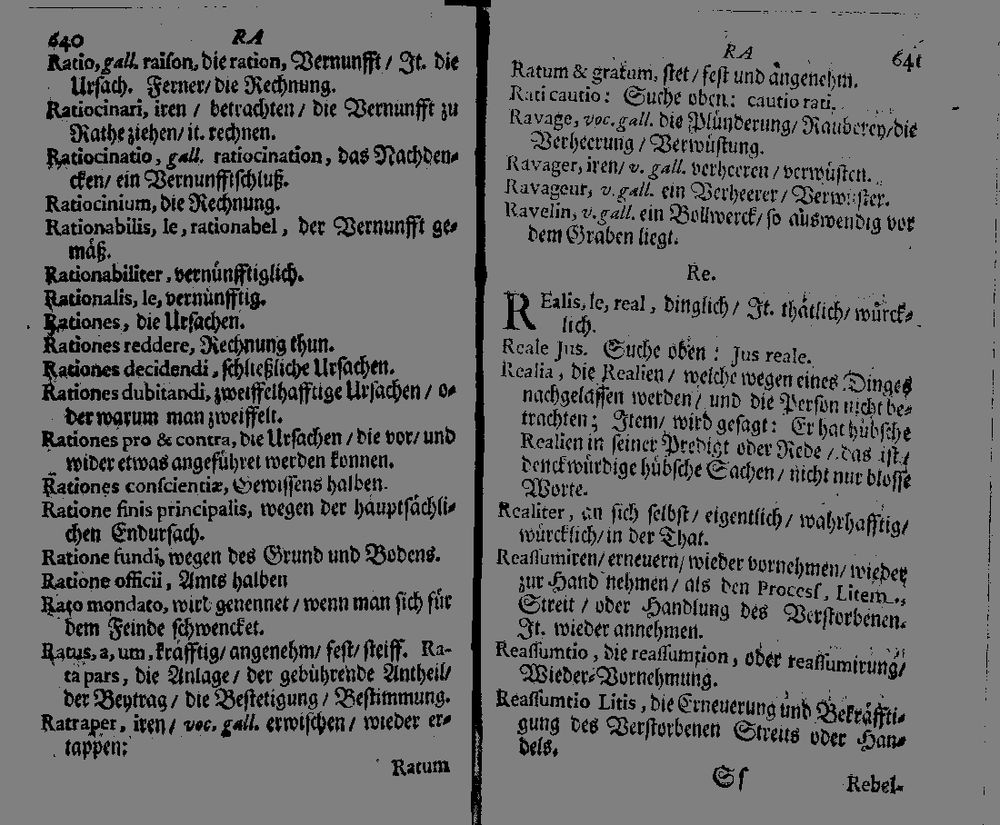 640 RA
Ratio, gall. raison, die ration, Vernunfft / It. die
Ursach. Ferner / die Rechnung.
Ratiocinari, iren / betrachten / die Vernunfft zu
Rathe ziehen / it. rechnen.
Ratiocinatio, gall. ratiocination, das Nachden-
cken / ein Vernunfftschluß.
Ratiocinium, die Rechnung.
Rationabilis, le, rationabel, der Vernunfft ge-
mäß.
Rationabiliter, vernünfftiglich.
Rationalis, le, vernünfftig.
Rationes, die Ursachen.
Rationes reddere, Rechnung thun.
Rationes decidendi, schließliche Ursachen.
Rationes dubitandi, zweiffelhafftige Ursachen / o-
der warum man zweiffelt.
Rationes pro & contra, die Ursachen / die vor / und
wider etwas angeführet werden konnen.
Rationes conscientiæ, Gewissens halben.
Ratione finis principalis, wegen der hauptsächli-
chen Endursach.
Ratione fundi, wegen des Grund und Bodens.
Ratione officii, Amts halben
Rato mondato, wird genennet / wenn man sich für
dem Feinde schwencket.
Ratus, a, um, kräfftig / angenehm / fest / steiff. Ra-
ta pars, die Anlage / der gebührende Antheil /
der Beytrag / die Bestetigung / Bestimmung.
Ratraper, iren / voc. gall. erwischen / wieder er-
tappen:
Ratum
RA 641
Ratum & gratum, stet / fest und angenehm.
Rati cautio: Suche oben: cautio rati.
Ravage, voc. gall. die Plünderung / Rauberey / die
Verheerung / Verwüstung.
Ravager, iren / v. gall. verheeren / verwüsten.
Ravageur, v. gall. ein Verheerer / Verwüster.
Ravelin, v. gall. ein Bollwerck / so auswendig vor
dem Graben liegt.
Re.
REalis, le, real, dinglich / It. thätlich / würck-
lich.
Reale Jus. Suche oben: Jus reale.
Realia, die Realien / welche wegen eines Dinges
nachgelassen werden / und die Person nicht be-
trachten; Item / wird gesagt: Er hat hübsche
Realien in seiner Predigt oder Rede / das ist /
denckwürdige hübsche Sachen / nicht nur blosse
Worte.
Realiter, an sich selbst / eigentlich / wahrhafftig /
würcklich / in der That.
Reassumiren / erneuern / wieder vornehmen / wieder
zur Hand nehmen / als den Process, Litem,
Streit / oder Handlung des Verstorbenen.
It. wieder annehmen.
Reassumtio, die reassumtion, oder reassumirung /
Wieder-Vornehmung.
Reassumtio Litis, die Erneuerung und Bekräffti-
gung des Verstorbenen Streits oder Han-
dels.
Ss Rebel-